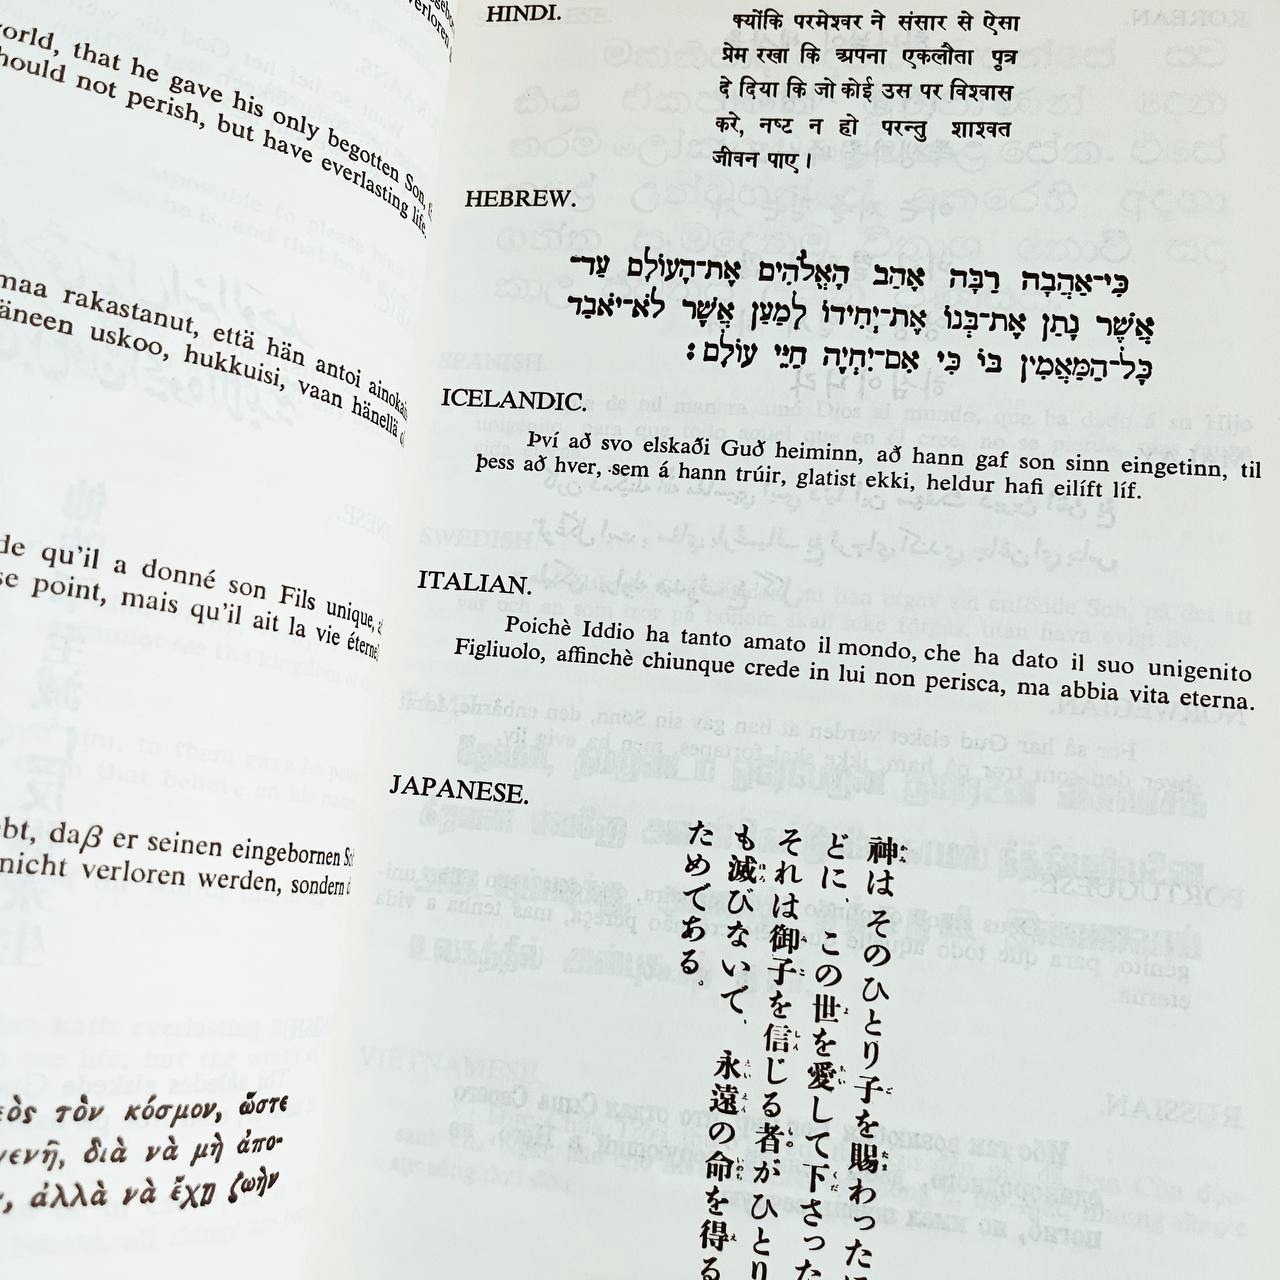 world, that he gave his only begotten Son,
should not perish, but have everlasting life.
maa rakastanut, että hän antoi
uskoo, hukkuisi, vaan hänellä
de qu'il a donné son Fils unique,
se point, mais qu'il ait la vie
daß er seinen eingebornen
nicht verloren werden, sondern
τὸν κόσμον, ὥστε
διὰ νὰ μὴ ἀπο-
ἀλλὰ νὰ ἔχῃ ζωὴν
HINDI.
क्योंकि परमेश्वर ने संसार से ऐसा
प्रेम रखा कि अपना एकलौता पुत्र
दे दिया कि जो कोई उस पर विश्वास
करे, नष्ट न हो परन्तु शाश्वत
जीवन पाए।
HEBREW.
כִּי־אַהֲבָה רַבָּה אָהַב הָאֱלֹהִים אֶת־הָעוֹלָם עַד־
אֲשֶׁר נָתַן אֶת־בְּנוֹ אֶת־יְחִידוֹ לְמַעַן אֲשֶׁר לֹא־יֹאבַד
כָּל־הַמַּאֲמִין בּוֹ כִּי אִם־יִחְיֶה חַיֵּי עוֹלָם׃
ICELANDIC.
Því að svo elskaði Guð heiminn, að hann gaf son sinn eingetinn, til
þess að hver, sem á hann trúir, glatist ekki, heldur hafi eilíft líf.
ITALIAN.
Poichè Iddio ha tanto amato il mondo, che ha dato il suo unigenito
Figliuolo, affinchè chiunque crede in lui non perisca, ma abbia vita eterna.
JAPANESE.
神はそのひとり子を賜わった
どに、この世を愛して下さった
それは御子を信じる者がひとり
も滅びないで、永遠の命を得る
ためである。